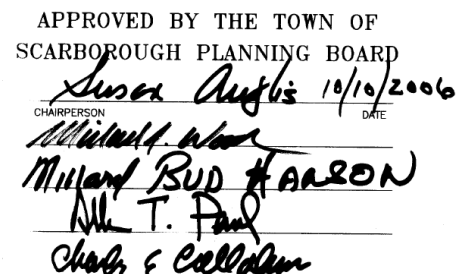 APPROVED BY THE TOWN OF
SCARBOROUGH PLANNING BOARD
Susan Auglis 10/10/2006
CHAIRPERSON DATE
Michael A. Wood
Millard BUD HANSON
T. Paul
Charles E Callahan